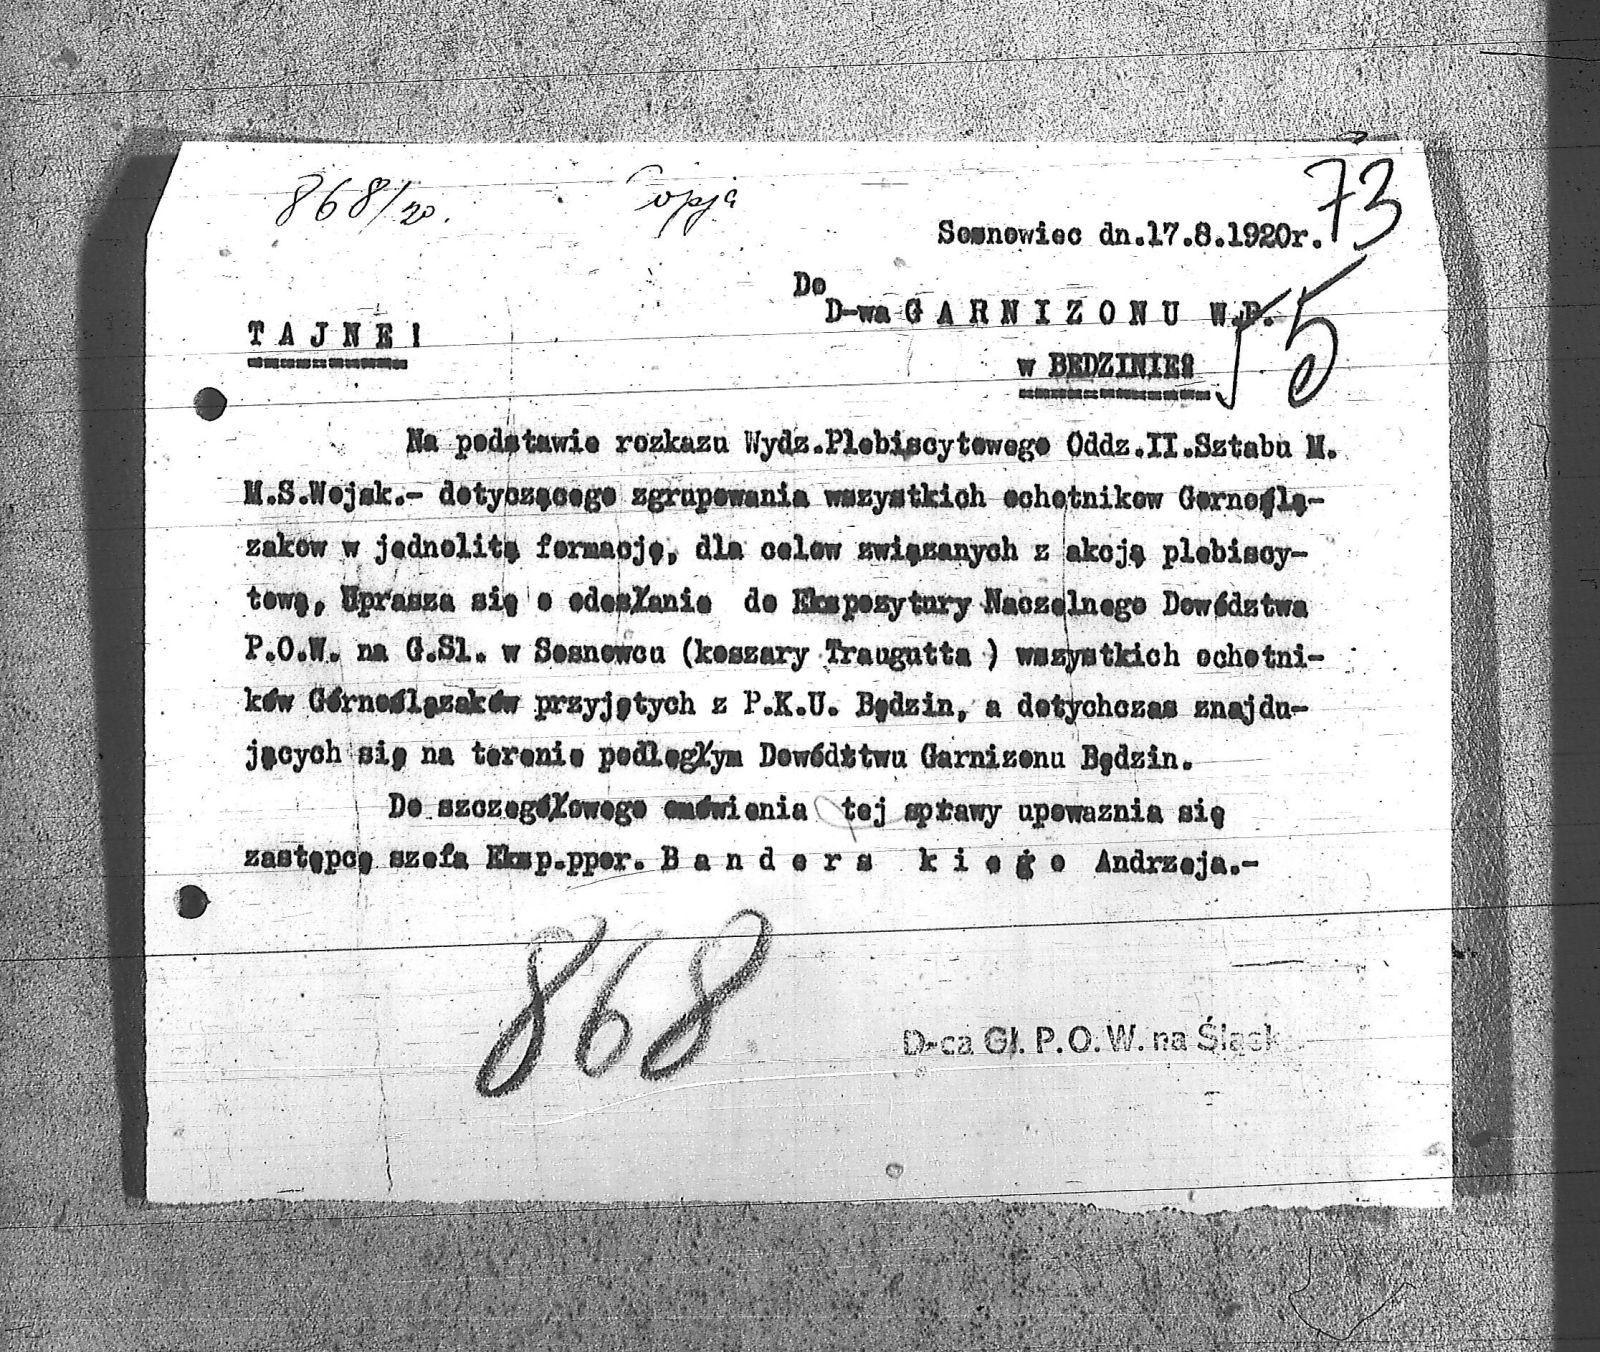 868/20.
Copja
73
Sosnowiec dn.17.8.1920r.
Do
D-wa GARNIZONU W.P.
55
TAJNE!
w BĘDZINIE:
Na podstawie rozkazu Wydz.Plebiscytowego Oddz.II.Sztabu M.
M.S.Wojsk.- dotyczącego zgrupowania wszystkich ochotnikow Gornoślą-
zakow w jednolitą formację, dla celow związanych z akcją plebiscy-
tową, Uprasza się o odesłanie do Ekspozytury Naczelnego Dowództwa
P.O.W. na G.Sl. w Sosnowcu (koszary Traugutta ) wszystkich ochotni-
ków Górnoślązaków przyjętych z P.K.U. Będzin, a dotychczas znajdu-
jących się na terenie podległym Dowództwu Garnizonu Będzin.
Do szczegółowego omówienia tej sprawy upowaznia się
zastępcę szefa Eksp.ppor. Banderskiego Andrzeja.-
868
D-ca Gł. P.O.W. na Śląsk